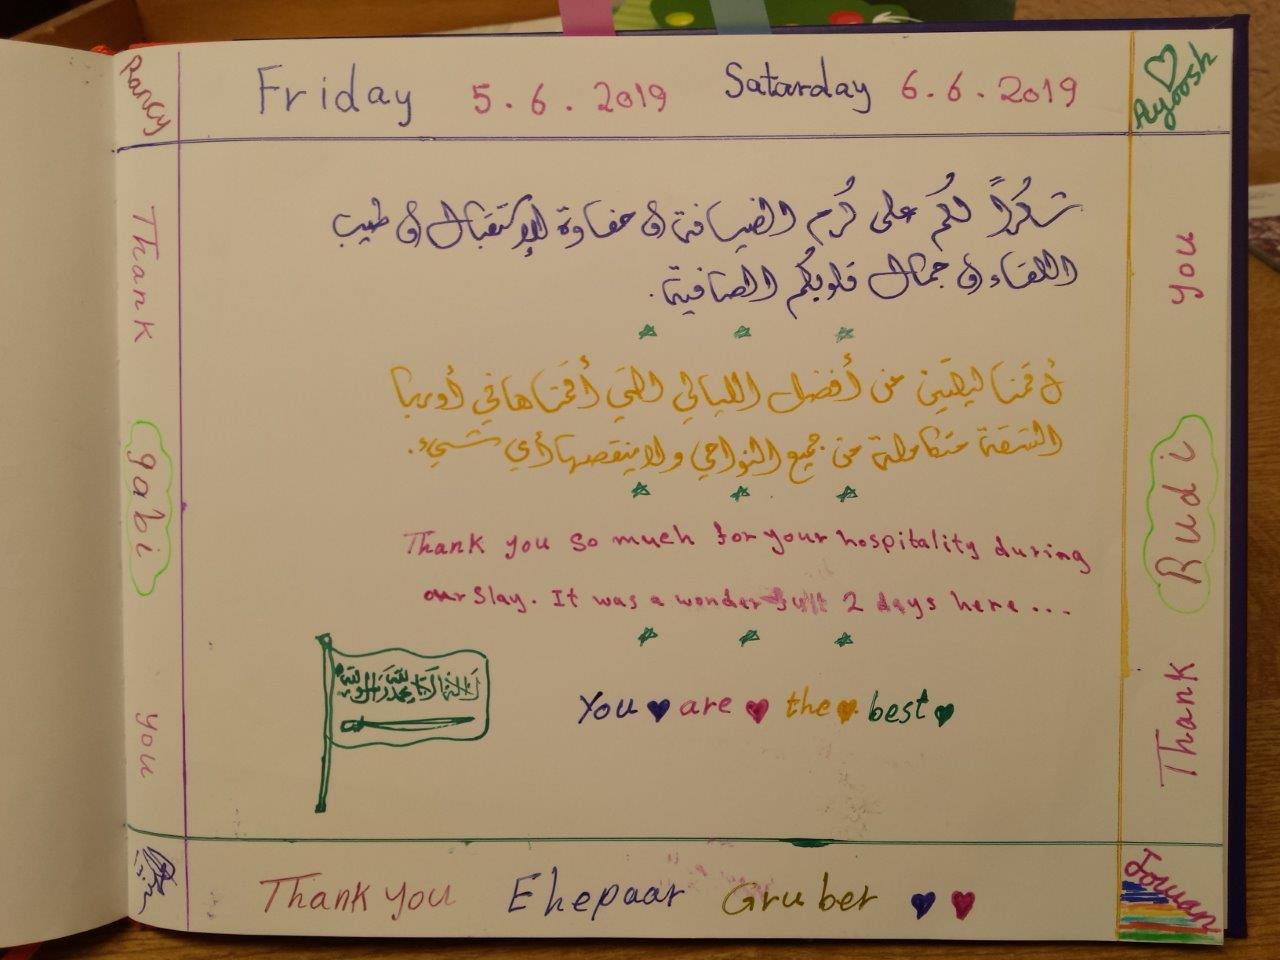 Friday 5.6.2019 Satarday 6.6.2019
Rancy
Ayoosh
شكراً لكم على كرم الضيافة و حفاوة الإستقبال و طيب
اللقاء و جمال قلوبكم الصافية.
أقمنا ليلتين من أفضل الليالي التي أقمناها في أوربا
الشقة متكاملة من جميع النواحي ولا ينقصها أي شيء.
Thank you so much for your hospitality during
our Slay. It was a wonderfull 2 days here...
You are the best
لا إله إلا الله محمد رسول الله
Thank gabi you
Thank Rudi you
Thank you Ehepaar Gruber